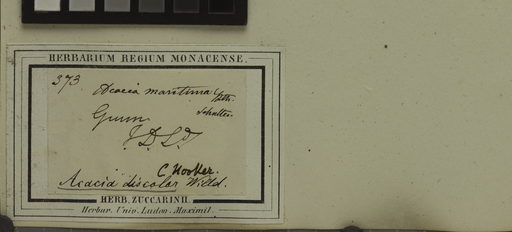 HERBARIUM REGIUM MONACENSE.
373 Acacia maritima
Gunn
V.D.L.
C. Hooker.
Acacia discolor Willd.
HERB. ZUCCARINII.
Herbar. Univ. Ludov. Maximil.